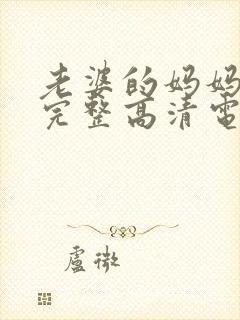 老婆的妈妈
完整高清電
虛微